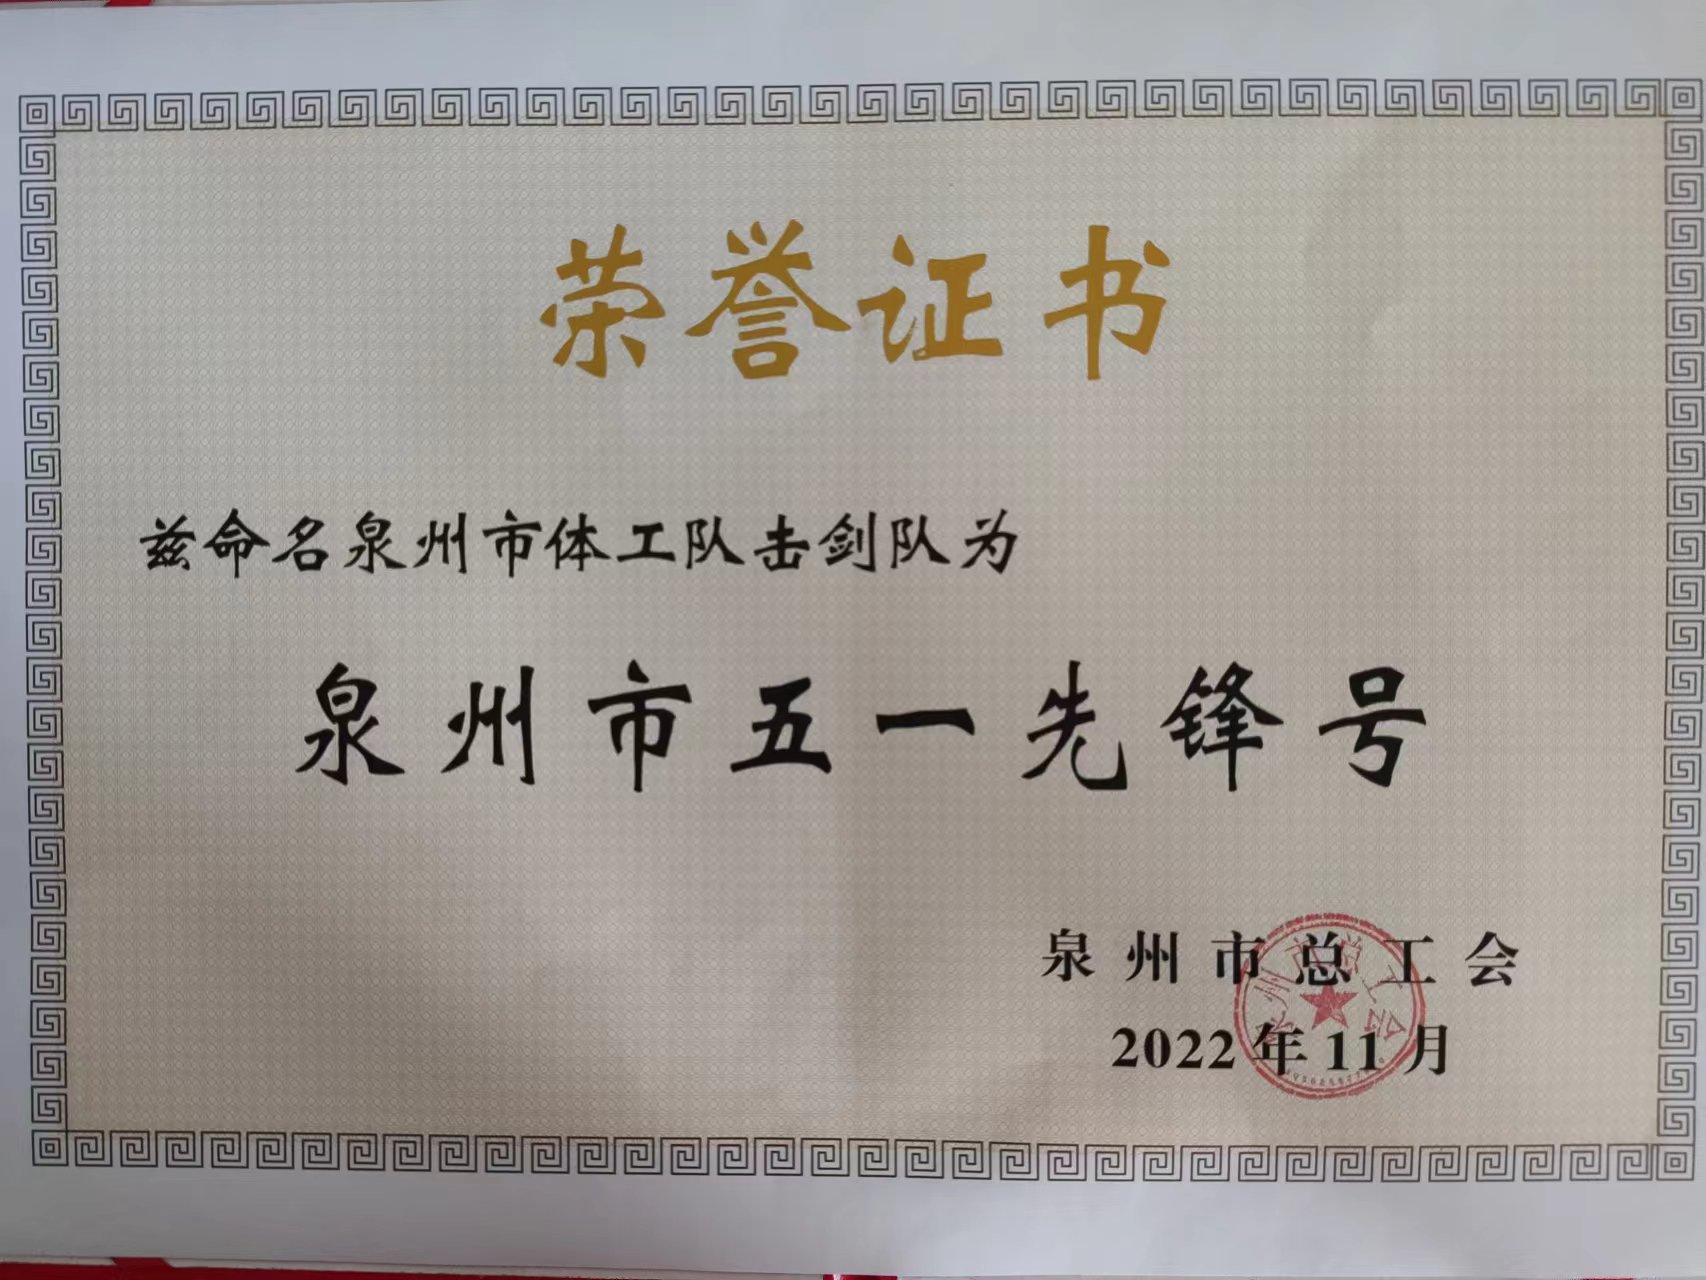 荣誉证书
兹命名泉州市体工队击剑队为
泉州市五一先锋号
泉州市总工会
2022年11月
泉州市总工会